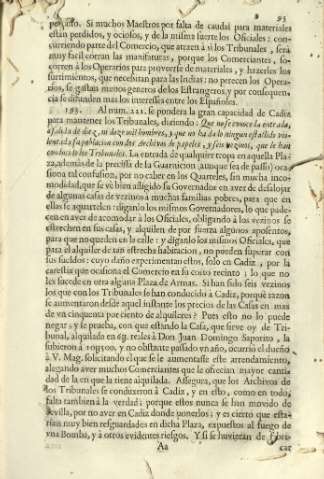 93
perjuizio. Si muchos Maestros por falta de caudal para materiales
estàn perdidos, y ociosos, y de la misma suerte los Oficiales: con-
curriendo parte del Comercio, que atraen à sì los Tribunales, serà
muy facil corran las manifaturas, porque los Comerciantes, so-
corren à los Operarios para proveerse de materiales, y hazerles los
surtimientos, que necessitan para las Indias: no perecen los Ope-
rarios, se gastan menos generos de los Estrangeros, y por consequen-
cia se difunden mas los interesses entre los Españoles.
193. Al num. 221. se pondera la gran capacidad de Cadiz
para mantener los Tribunales, diziendo: Que no se conoce la entrada,
ni salida de diez, ni doze mil hombres, y que no ha de
lentar su poblacion con dos Archivos de papeles, y seis vezinos, que le han
conducido los Tribunales. La entrada de qualquier tropa en aquella Pla-
za, además de la precissa de la Guarnicion (aunque sea de passo) oca-
siona tal confusion, por no caber en los Quarteles, sin mucha inco-
modidad, que se vè bien afligido su Governador en aver de desalojar
de algunas casas de vezinos à muchas familias pobres, para que en
ellas se aquartelen: diganlo los mismos Governadores, lo que pade-
cen en aver de acomodar à los Oficiales, obligando à los vezinos se
estrechen en sus casas, y alquilen de por fuerza algunos aposentos,
para que no queden en la calle: y diganlo los mismos Oficiales, que
para el alquiler de tan estrecha habitacion, no pueden superar con
sus sueldos: cuyo daño experimentan estos, solo en Cadiz, por la
carestia que ocasiona el Comercio en su corto recinto; lo que no
les sucede en otra alguna Plaza de Armas. Si han sido seis vezinos
los que con los Tribunales se han conducido à Cadiz, porquè razon
se aumentaron desde aquel instante los precios de las Casas en mas
de vn cinquenta por ciento de alquileres? Pues esto no lo puede
negar, y se prueba, con que estando la Casa, que sirve oy de Tri-
bunal, alquilada en reales à Don Juan Domingo Saporito, la
subieron à y no obstante passado vn año, ocurriò el dueño
à V. Mag. solicitando el que se le aumentasse este arrendamiento,
alegando aver muchos Comerciantes que le ofrecian mayor canti-
dad de la en que la tiene alquilada. Assegura, que los Archivos de
los Tribunales se conduxeron à Cadiz, y en esto, como en todo,
falta tambien à la verdad; porque estos nunca se han movido de
Sevilla, por no aver en Cadiz donde ponerlos; y es cierto que esta-
rian muy bien resguardados en dicha Plaza, expuestos al fuego de
vna Bomba, y à otros evidentes riesgos. Y si se huvieran de
Aa